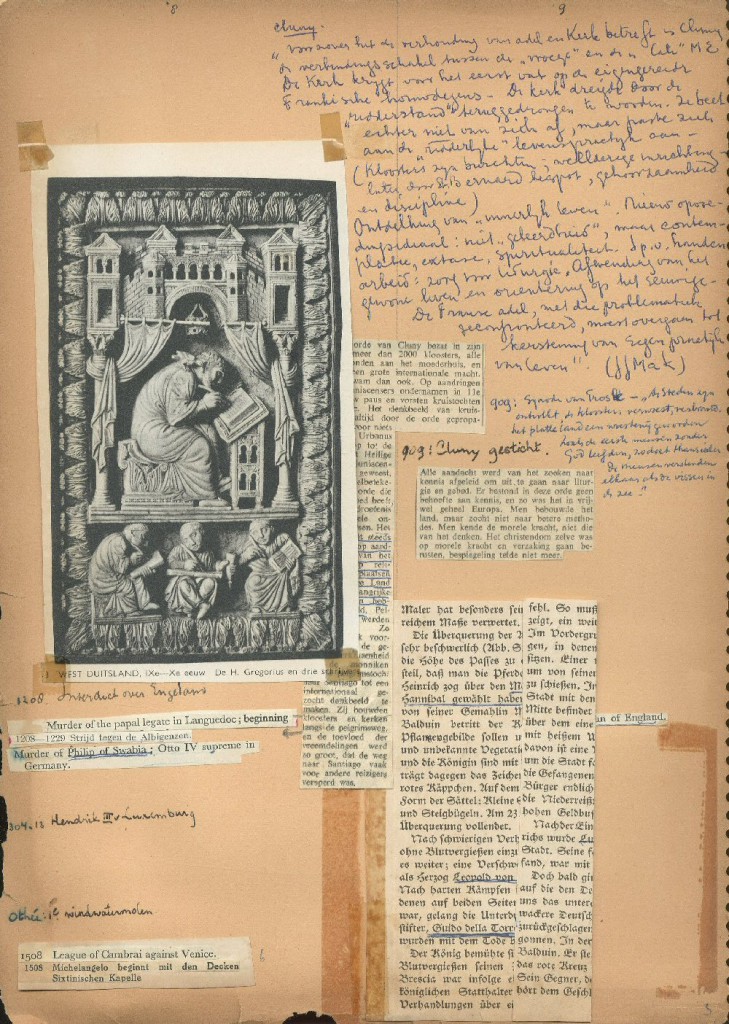 8
9
Cluny.
"Voorzover het de verhouding van adel en Kerk betreft is Cluny
de verbindingsschakel tussen de "vroege" en de "late" M.E.
De Kerk krijgt voor het eerst vat op de eigengereide
Frankische homo
De kerk dreigde door de
"ridderstand" teruggedrongen te worden. Ze beet
echter niet van zich af, maar paste zich
aan de "ridderlijke" levenspractijk aan –
(Kloosters zijn burchten;
later door St Bernard bespot, gehoorzaamheid
en discipline)
Ontdekking van "innerlijk leven". Nieuw opvoe-
dingsideaal: niet "geleerdheid", maar contem-
platie, extase, spiritualiteit. I.p.v. handen
arbeid: zorg voor liturgie. Afwending van het
gewone leven en oriëntering op het eeuwige.
De Franse adel, met die problematiek
geconfronteerd, moest overgaan tot
kerstening van eigen practijk
van leven". (JJ Mak)
909: Synode van Trosle – "De steden zijn
ontvolkt, de kloosters verwoest, verbrand,
het platteland een woestenij geworden
zoals de eerste mensen zonder
God leefden, zo doet thans ieder
de mensen verslinden
elkaar als de vissen in
de zee."
orde van Cluny bezat in zijn
meer dan 2000 kloosters, alle
onden aan het moederhuis, en
en grote internationale macht.
wam dan ook. Op aandringen
niacensers ondernamen in 11e
w paus en vorsten kruistochten
. Het denkbeeld van kruis-
altijd door de orde gepropa-
oor niets
Urbanus
p tot de
Heilige
uniscen-
geweest,
elbeteke-
orde die
end heeft
droefenis
ele on-
sen. Het
n steeds
op aard-
van het
p reli-
plaatsen
g Land
langrijke
n bed-
d. Pel-
Werden
Zo
voor-
de ge-
zenheid
monniken
instocht
naar Santiago tot een
internationaal ge-
zocht denkbeeld te
maken. Zij bouwden
kloosters en kerken
langs de pelgrimsweg,
en de toevloed der
vreemdelingen werd
zo groot, dat de weg
naar Santiago vaak
voor andere reizigers
versperd was.
909: Cluny gesticht.
Alle aandacht werd van het zoeken naar
kennis afgeleid om uit te gaan naar litur-
gie en gebed. Er bestond in deze orde geen
behoefte aan kennis, en zo was het in vrij-
wel geheel Europa. Men bebouwde het
land, maar zocht niet naar betere metho-
des. Men kende de morele kracht, niet die
van het denken. Het christendom zelve was
op morele kracht en verzaking gaan be-
rusten, bespiegeling telde niet meer.
1 WEST DUITSLAND, IXe—Xe eeuw De H. Gregorius en drie
1208. Interdict over Engeland
Murder of the papal legate in Languedoc; beginning
1208–1229 Strijd tegen de Albigenzen.
Murder of Philip of Swabia; Otto IV supreme in
Germany.
an of England.
Hendrik v Luxemburg
windwatermolen
1508 League of Cambrai against Venice.
1508 Michelangelo beginnt mit den Decken
Sixtinischen Kapelle
6
Maler hat besonders sei
reichem Maße verwertet.
Die Überquerung der
sehr beschwerlich (Abb. S
die Höhe des Passes zu
steil, daß man die Pferde
Heinrich zog über den M
Hannibal gewählt habe
von seiner Gemahlin
Balduin betritt der K
Pflanzengebilde sollen u
und unbekannte Vegetati
und die Königin sind mit
trägt dagegen das Zeichen
rotes Käppchen. Auf dem
Form der Sättel: Kleine
und Steigbügeln. Am 23
Überquerung vollendet.
Nach schwierigen Verh
ohne Blutvergießen einzu
es weiter; eine Verschw
als Herzog Leopold von
Nach harten Kämpfen
denen auf beiden Seiten
war, gelang die Unterd
stifter, Guido della Torr
wurden mit dem Tode b
Der König bemühte si
Blutvergießen seinen
Brescia war infolge e
königlichen Statthalter
Verhandlungen über ei
fehl. So muß
zeigt, ein weit
Im Vordergr
gen, in denen
sitzen. Einer
um von seiner
zu schießen. In
Stadt mit den
Mitte befindet
über dem eine
mit heißem W
davon ist eine
um die Stadt f
die Gefangenen
Bürger endlich
die Niederreiß
hohen Geldbuß
Nach der Ein
richs wurde
Stadt. Seine f
fand, war mit
Doch bald gi
auf die den De
uns das unter
wackere Deutsch
zurückgeschlagen
gonnen. In der
Balduin. Er ste
das rote Kreuz
Sein Gegner, de
hört dem Geschl
5